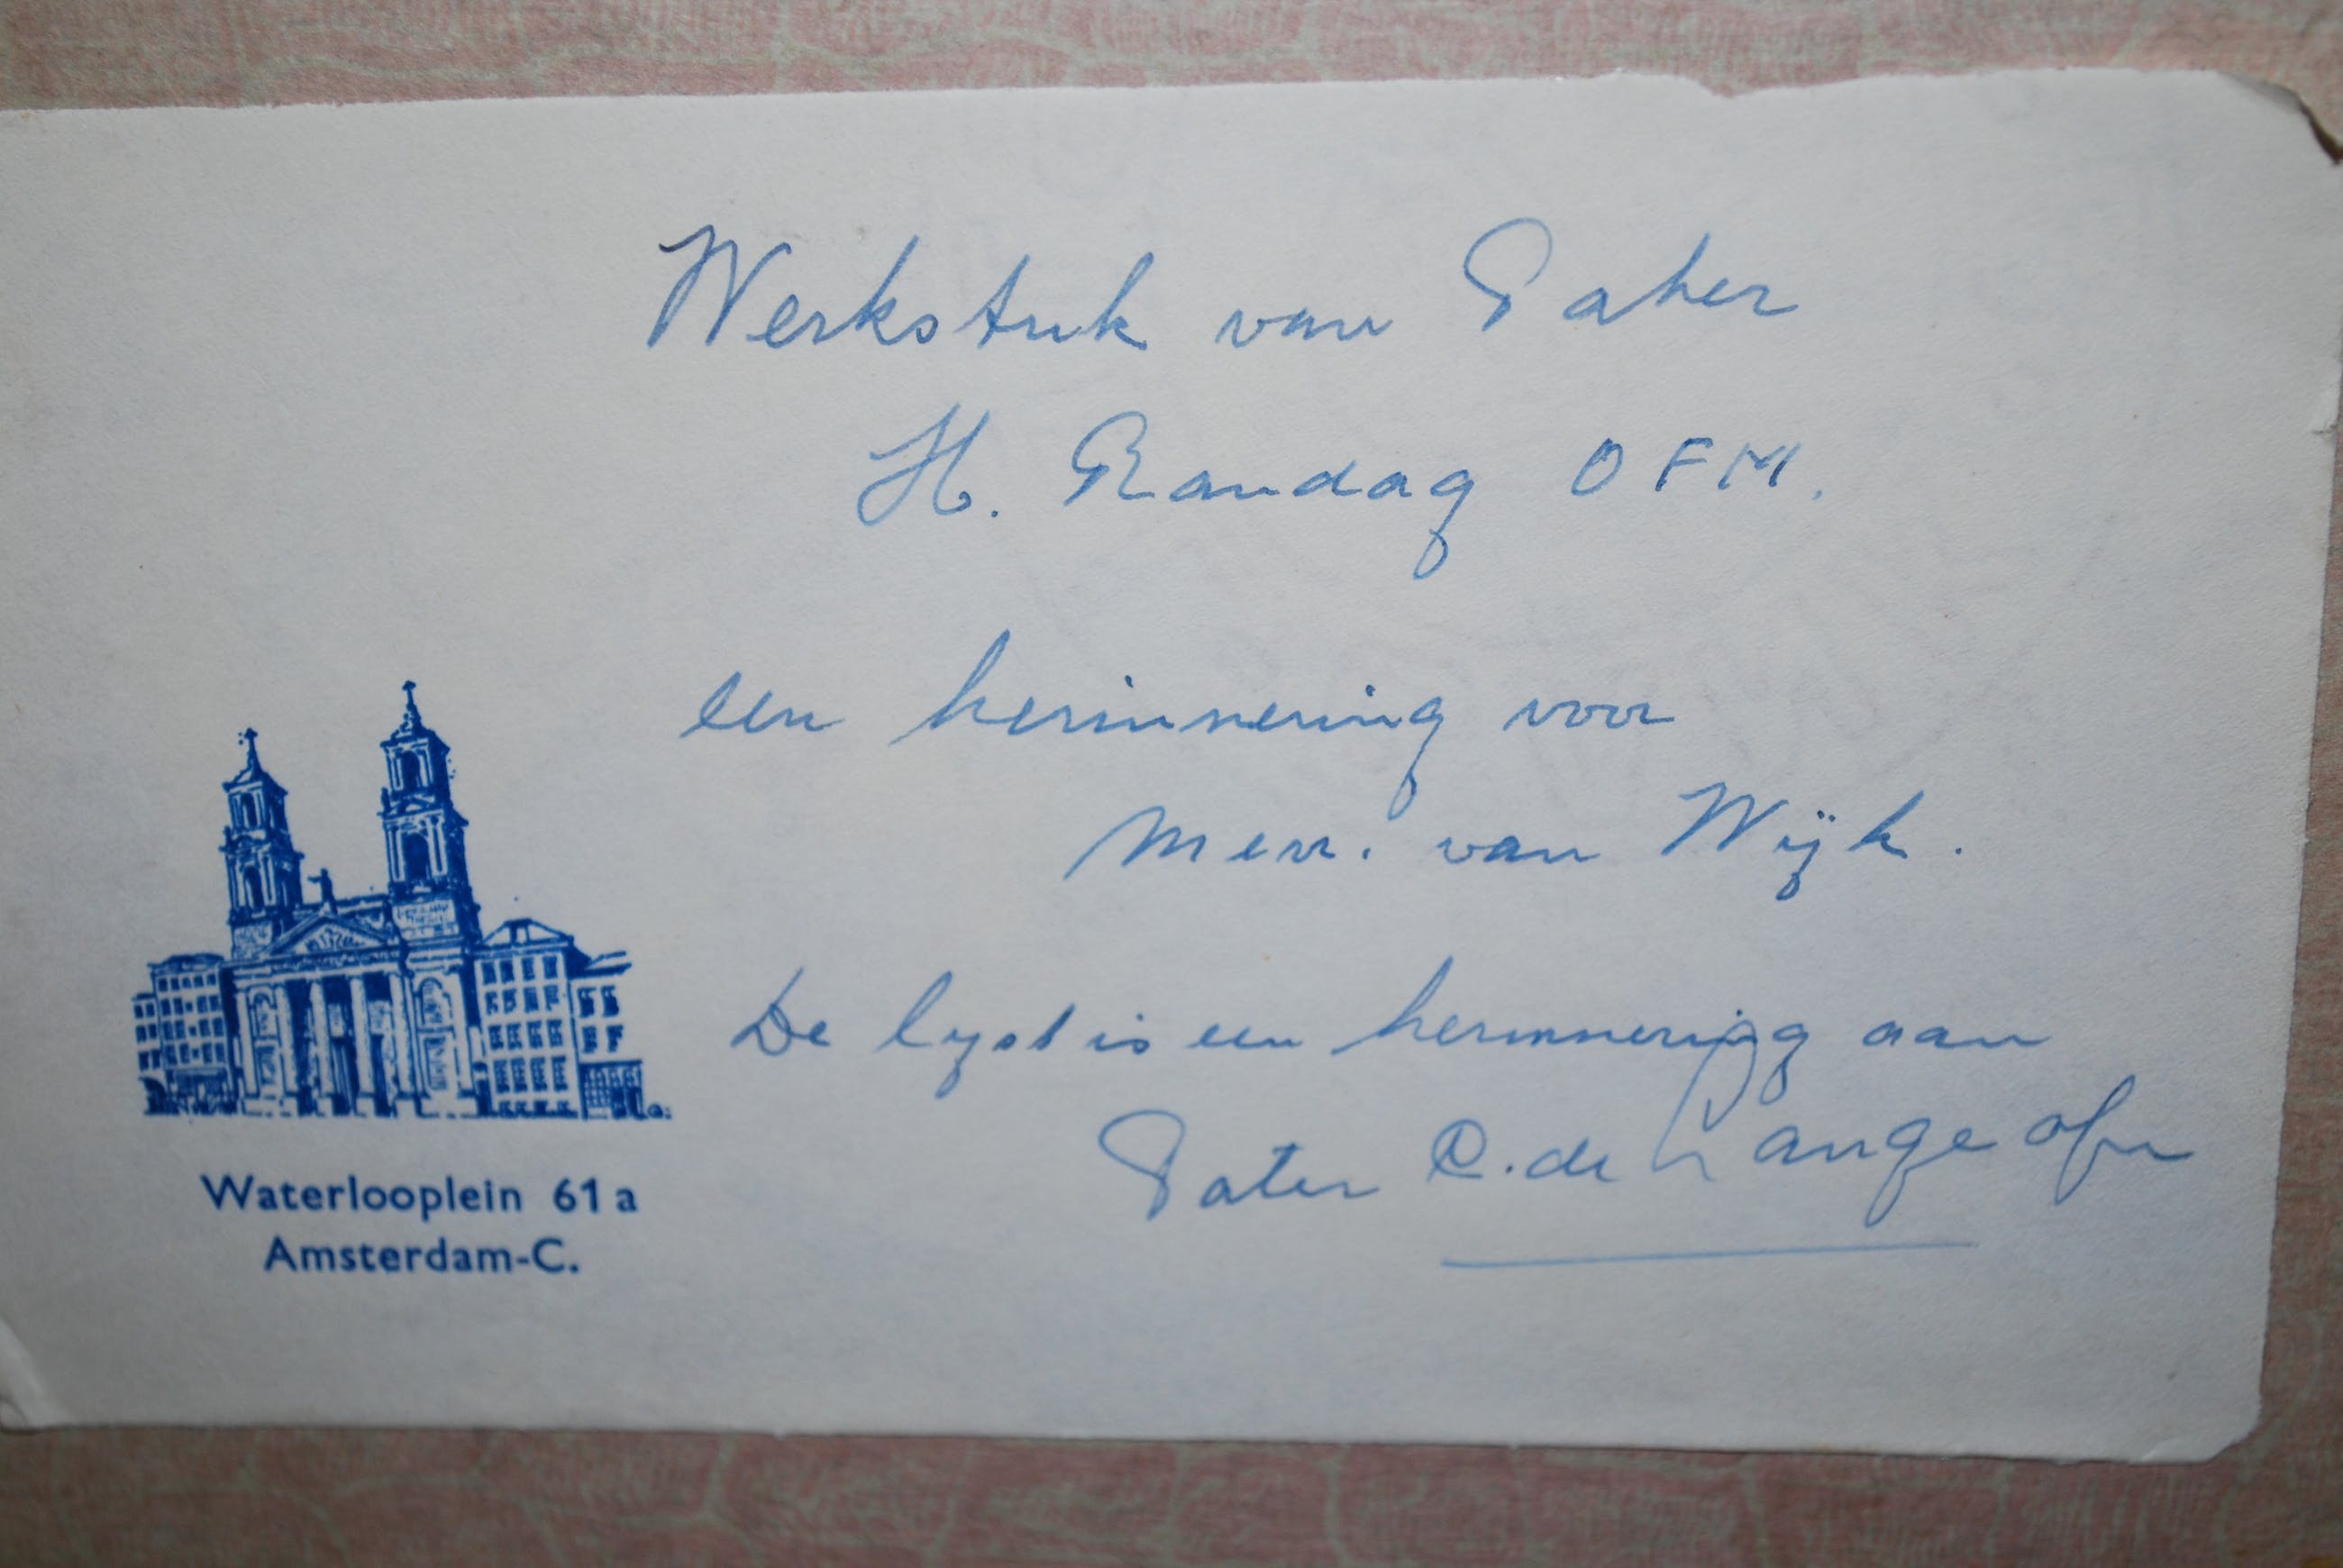 Werkstuk van Pater
H. Randag OFM.
een herinnering voor
Mevr. van Wijk.
De lyst is een herinnering aan
Pater C. de Lange ofm
Waterlooplein 61a
Amsterdam-C.